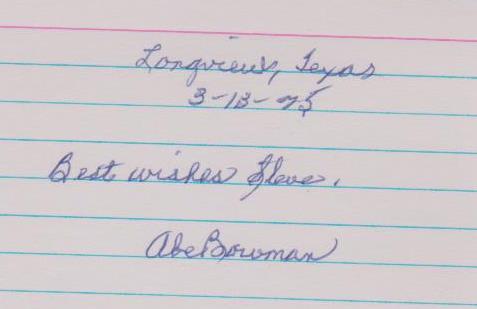 Longview, Texas
3-13-75
Best wishes Steve.
Abe Bowman